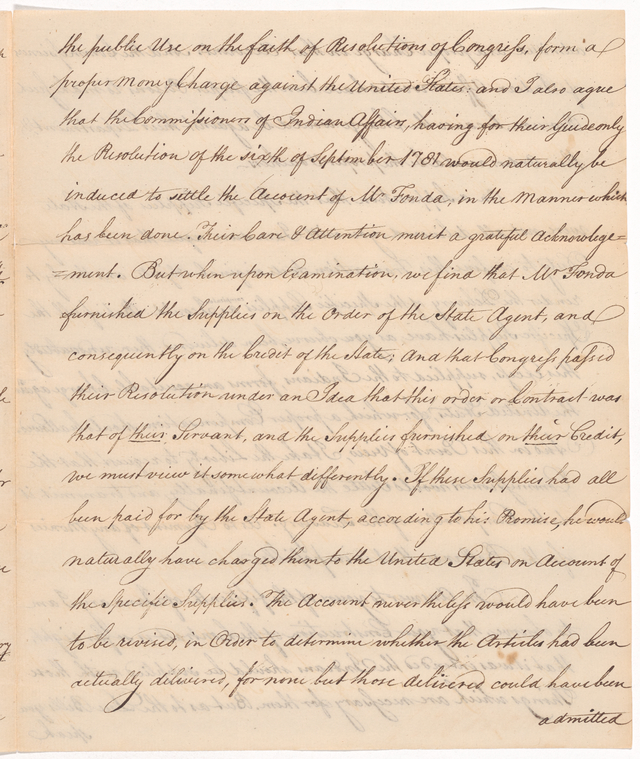 the public Use on the faith of Resolutions of Congress, form a
proper Money Charge against the United States: and I also agree
that the Commissioners of Indian Affairs, having for their Guide only
the Resolution of the sixth of September 1781 would naturally be
induced to settle the Account of Mr Fonda, in the Manner which
has been done. Their Care & Attention merit a grateful Acknowlege=
=ment. But when upon Examination, we find that Mr Fonda
furnished the Supplies on the Order of the State Agent, and
consequently on the Credit of the State; And that Congress passed
their Resolution under an Idea that this order or Contract was
that of their Servant, and the Supplies furnished on their Credit,
we must view it somewhat differently. If these Supplies had all
been paid for by the State Agent, according to his Promise, he would
naturally have charged them to the United States on Account of
the Specific Supplies. The Account nevertheless would have been
to be revised, in Order to determine whether the Articles had been
actually delivered, for none but those delivered could have been
admitted